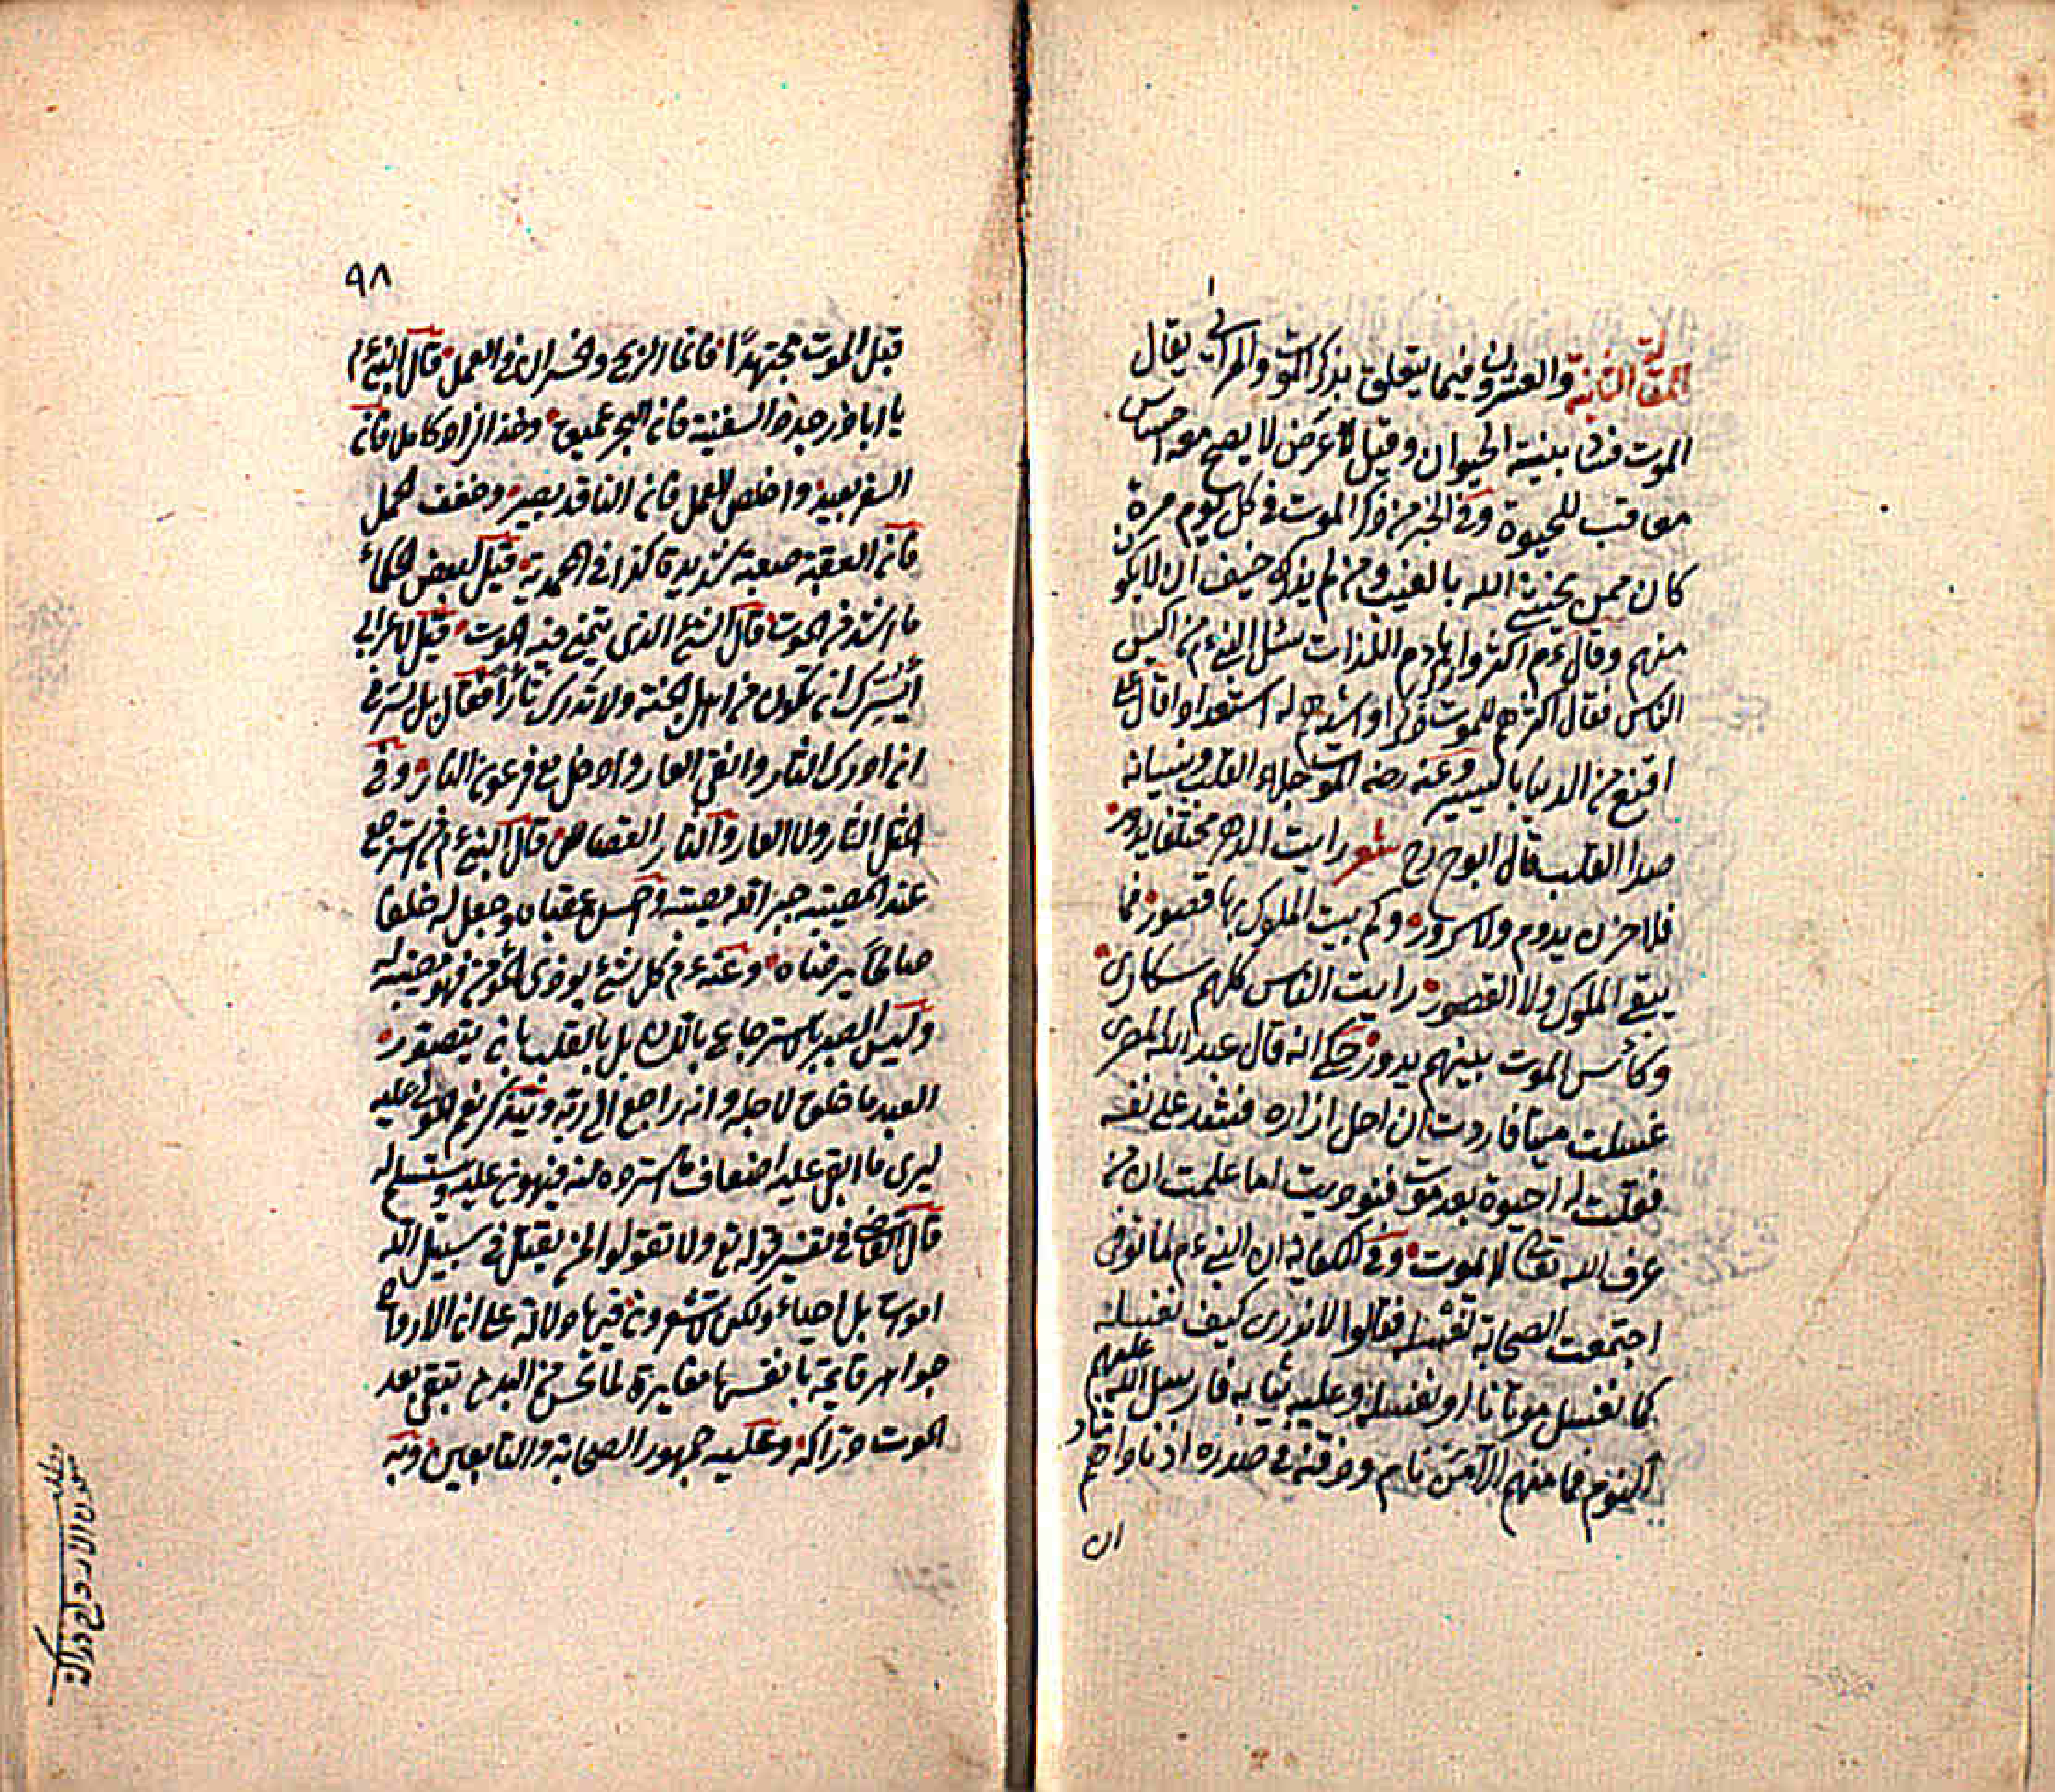 المقالة الثانية والعشرون فيما يتعلق بذكر الموت والمراثى يقال
الموت فساد بنية الحيوان وقيل عرض لا يصح معه احساس
معاقب للحيوة وفى الخبر من ذكر الموت فى كل يوم مرة
كان ممن يخشى الله بالغيب ومن لم يذكره خيف ان لا يكون
منهم وقال ءم اكثروا هادم اللذات سئل النبى ءم من اكيس
الناس فقال اكثرهم للموت ذكرا واشدهم له استعدادا قال على
اقنع من الدنيا باليسير وعنه رضه الموت جلاء القلب ونسيانه
صدا القلب قال ابوح رح شعر رايت الدهر مختلفا يدور
فلا حزن يدوم ولا سرور وكم بيت الملوك بها قصور فما
يبقى الملوك ولا القصور رايت الناس كلهم سكارى
وكأس الموت بينهم يدور حكى انه قال عبد الله
غسلت ميتا فاردت ان احل ازاره فشد على نفسه
فقلت له احيوة بعد موت فنوديت اما علمت ان من
عرف الله تعالى لا يموت وفى الكفاية ان النبى ءم لما توفى
اجتمعت الصحابة لغسله فقالوا لا ندرى كيف نغسله
كما نغسل موتانا او نغسله وعليه ثيابه فارسل الله عليهم
النوم فما منهم الا من نام وذقنه فى صدره اذ ناداهم مناد
ان
٩٨
قبل الموت مجتهدًا فانما الربح والخسران فى العمل قال النبى ءم
يا ابا ذر جدد السفينة فان البحر عميق وخذ الزاد كاملا فان
السفر بعيد واخلص العمل فان الناقد بصير وخفف الحمل
فان العقبة صعبة شديد كذا فى المحمدية قيل لبعض الحكماء
ما اشد من الموت قال الشئ الذى يتمنى فيه الموت قيل لاعرابى
أيسرك ان تكون من اهل الجنة ولا تدرك ثأرًا فقال بل يسرنى
ان ادرك الثار وانفى العار وادخل مع فرعون النار وفى
المثل النار ولا العار والثار القصاص قال النبى ءم من استرجع
عند المصيبة جبر الله مصيبته واحسن عقباه وجعل له خلفا
صالحًا يرضاه وعنه ءم كل شئ يوذى المؤمن فهو مصيبة له
وليس الصبر بالاسترجاع باللسان بل بالقلب بان يتصور
العبد ما خلق لاجله وانه راجع الى ربه ويتذكر نعم المولى عليه
ليرى ما ابقى عليه اضعاف ما استرده منه فيهون عليه ويستسلم له
قال القاضى فى تفسير قوله تع ولا تقولوا لمن يقتل فى سبيل الله
اموات بل احياء ولكن لا تشعرون فيها دلالة على ان الارواح
جواهر قايمة بانفسها مغايرة لما تحس من البدن تبقى بعد
الموت دراكة وعليه جمهور الصحابة والتابعين وبه
كون الارواح دراكة